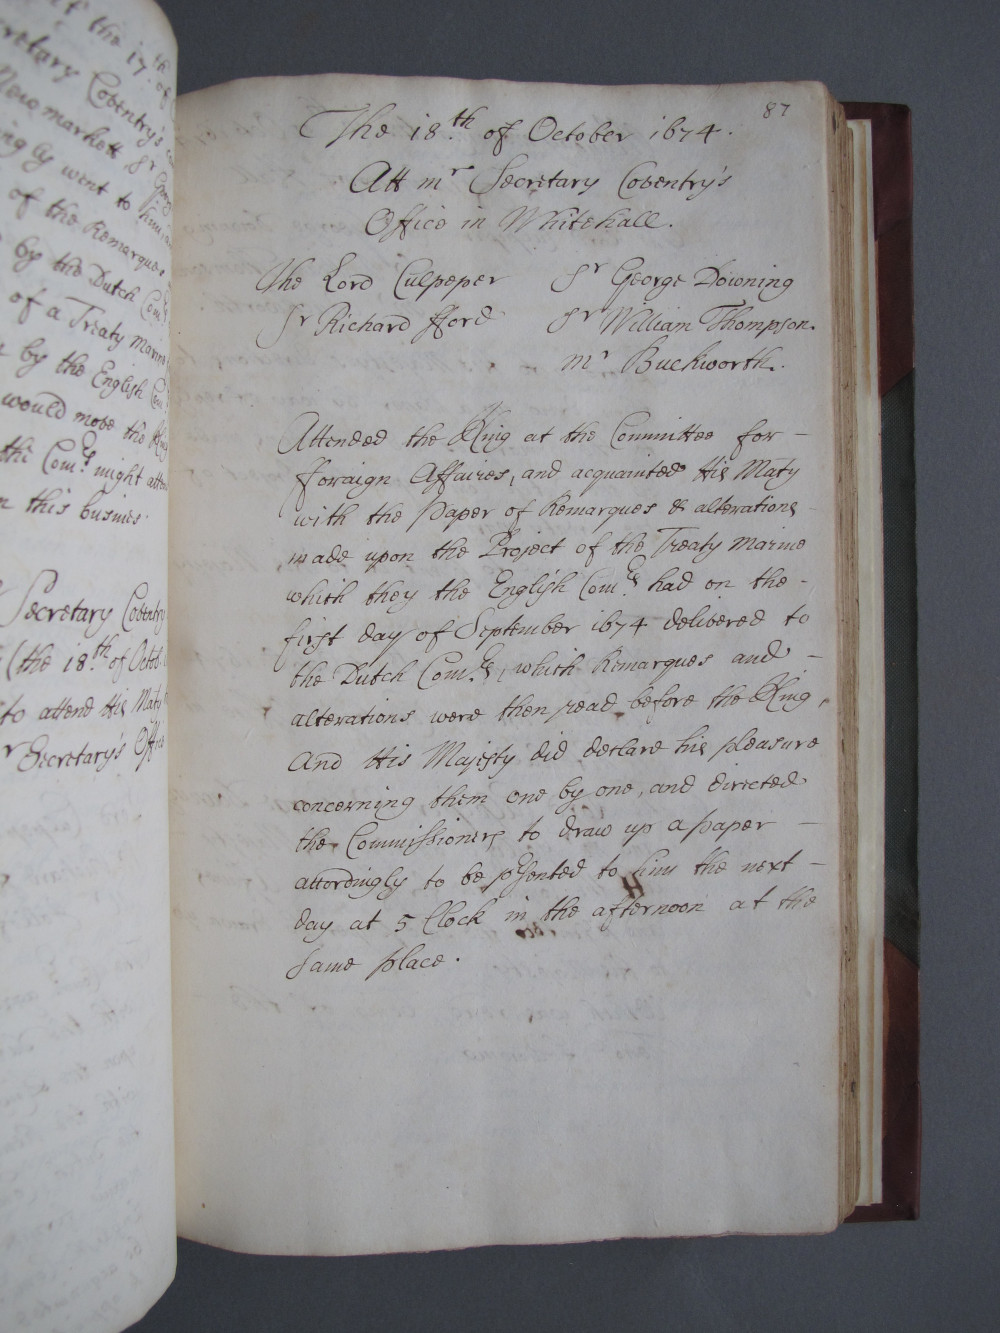 of the 17.th of
Secretary Coventry's
Newmarkett Sr Georg
ingly went to him
of the Remarques
by the Dutch Com.rs
of a Treaty Marine
by the English Com.rs
would move the King
the Com.rs might attend
n this busines.
Secretary Coventry
(the 18.th of Octob.
to attend His Maty
r Secretary's Office
87
The 18.th of October 1674.
Att mr Secretary Coventry's
Office in Whitehall.
The Lord Culpeper Sr George Downing
Sr Richard fford Sr William Thompson.
mr Buckworth.
Attended the King at the Committee for -
fforaign Affaires, and acquainted His Maty
with the Paper of Remarques & alterations
made upon the Project of the Treaty Marine
which they the English Com.rs had on the -
first day of September 1674 delivered to
the Dutch Com.rs, which Remarques and -
alterations were then read before the King,
And His Majesty did declare his pleasure
concerning them one by one, and directed
the Commissioners to draw up a paper -
accordingly to be p'sented to him the next -
day at 5 Clock in the afternoon at the
same place.